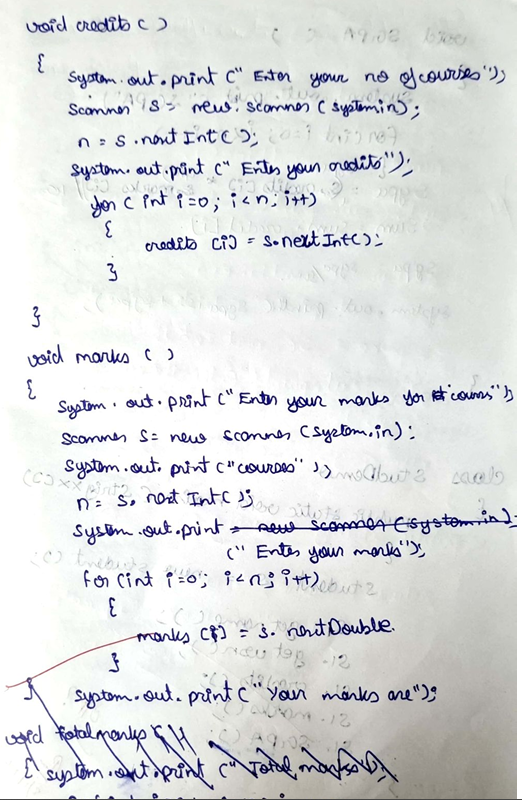 void credits ( )
{
System.out.print (" Enter your no of courses");
Scanner S = new.scanner (system.in);
n = s.next Int ( );
System.out.print (" Enter your credits");
for ( int i=0; i<n; i++)
{
credits [i] = s.next Int( );
}
}
void marks ( )
{
System.out.print (" Enter your marks for courses");
Scanner S= new scanner (system.in);
System.out.print ("courses" );
n = s.next Int ( );
System.out.print = new scanner (system.in);
(" Enter your marks");
for (int i=0; i<n; i++)
{
marks [i] = s.nextDouble.
}
} system.out.print (" Your marks are");
void Total marks ( )
{ system.out.print (" Total marks");